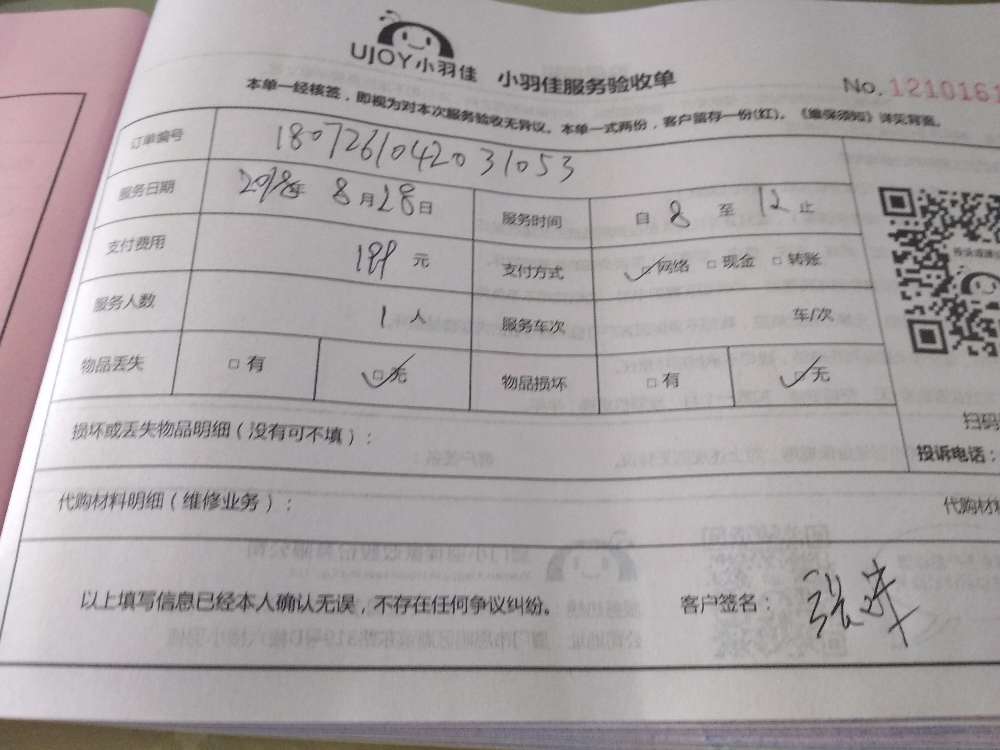 UJOY小羽佳 小羽佳服务验收单 No. 1210161
本单一经核签，即视为对本次服务验收无异议。本单一式两份，客户留存一份(红)。《维保须知》详见背面。
订单编号 180726104203 1053
服务日期 2018年 8月28日 服务时间 自 8 至 12 止
支付费用 199 元 支付方式 □网络 □现金 □转账
服务人数 1 人 服务车次 车/次
物品丢失 □有 □无 物品损坏 □有 □无
损坏或丢失物品明细（没有可不填）：
扫码
投诉电话：
代购材料明细（维修业务）： 代购材料
以上填写信息已经本人确认无误，不存在任何争议纠纷。 客户签名：